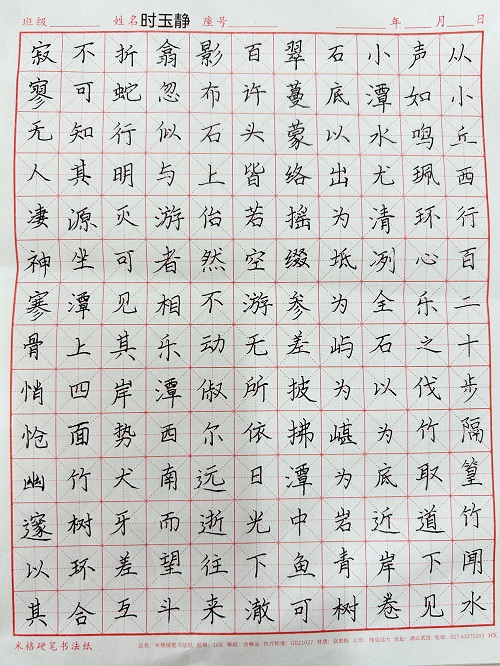 班级 姓名 时玉静 座号 年 月 日
从小丘西行百二十步隔篁竹闻水
声如鸣珮环心乐之伐竹取道下见
小潭水尤清冽全石以为底近岸卷
石底以出为坻为屿为嵁为岩青树
翠蔓蒙络摇缀参差披拂潭中鱼可
百许头皆若空游无所依日光下澈
影布石上佁然不动俶尔远逝往来
翕忽似与游者相乐潭西南而望斗
折蛇行明灭可见其岸势犬牙差互
不可知其源坐潭上四面竹树环合
寂寥无人凄神寒骨悄怆幽邃以其
米格硬笔书法纸